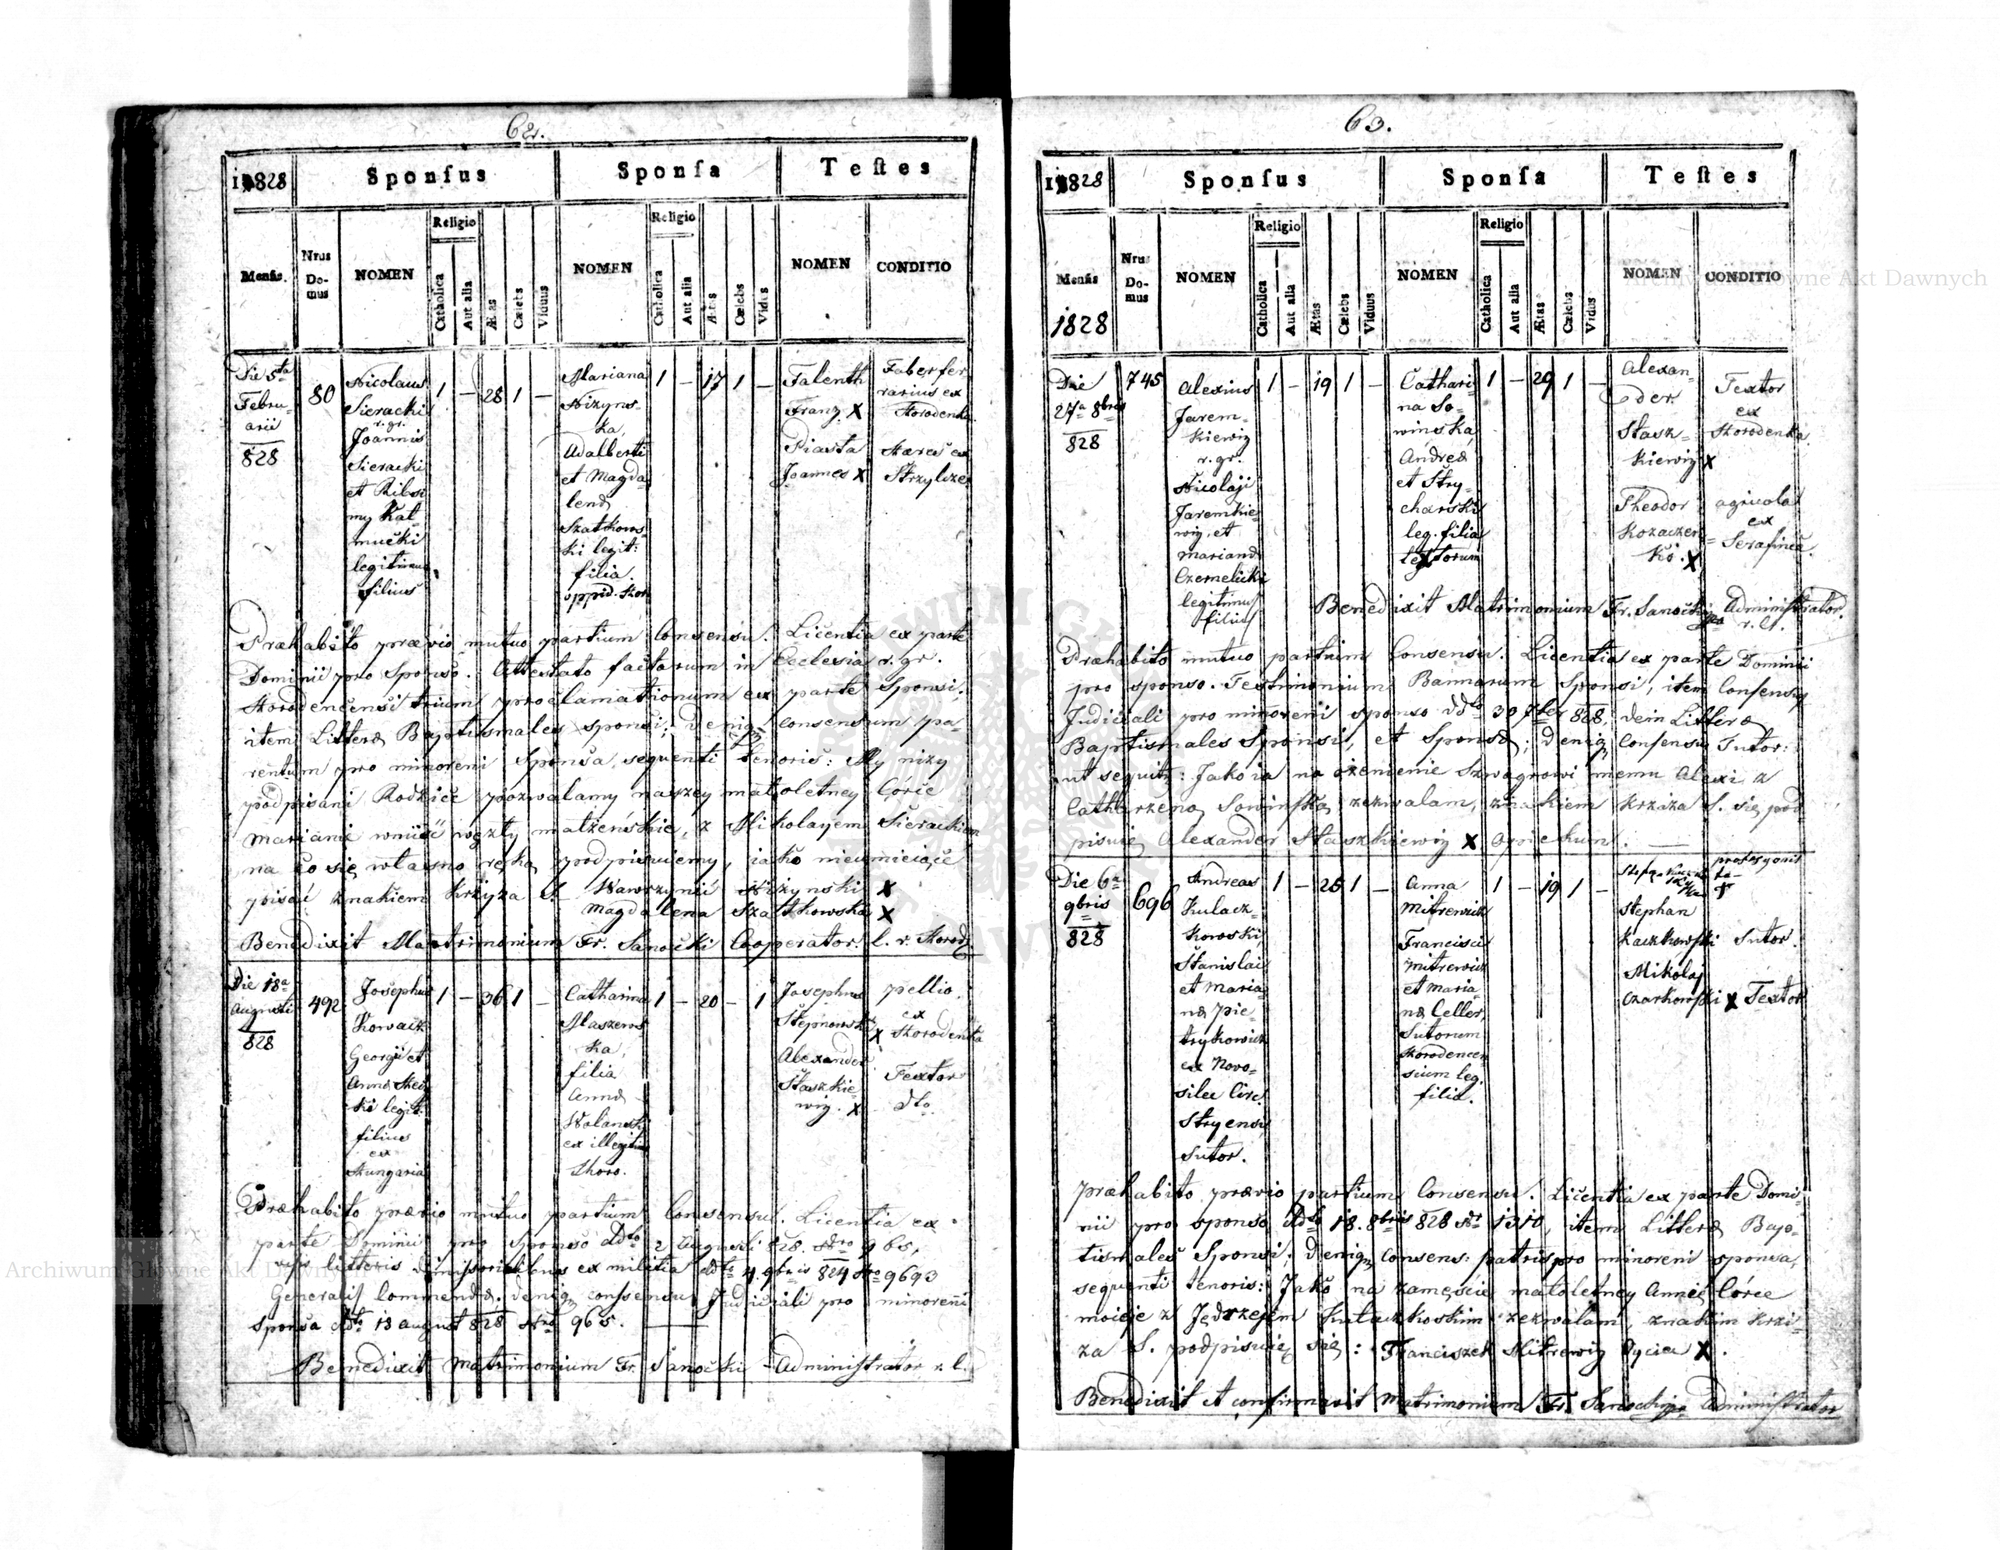 62.
1828
Sponſus
Sponſa
Teſtes
Mensis.
Nrus
Do-
mus
NOMEN
Religio
Catholica
Aut alia
Ætas
Cælebs
Viduus
NOMEN
Religio
Catholica
Aut alia
Ætas
Cælebs
Vidua
NOMEN
CONDITIO
Die 5ta
Febru-
arii
828
80
Nicolaus
Sieracki
r. gr.
Joannis
Sieracki
et
my Kal-
mucki
legitimus
filius
1 — 28 1 —
Mariana
Nizyns-
ka
Adalberti
et Magda-
lenæ
Szatkows-
ki legit:
filia.
oppid. Horo
1 — 17 1 —
Falenth
Franz X
Piasta
Joannes X
Faber fer
rarius ex
Horodenka
ex
Strzylcze
Præhabito prævio mutuo partium Consensu. Licentia ex parte
Dominii pro Sponso. Attestato factarum in Ecclesia r. gr.
Horodencensi trium proclamationum ex parte Sponsi,
item Litteræ Baptismales sponsi; deniq consensum pa-
rentum pro minoreni Sponsa, sequenti tenoris: My nizy
podpisani Rodzice pozwalamy naszey małoletney Córce
Mariannie wniść węzły małżeńskie, z Mikolayem Sierackiem
na co się własno ręką podpisujemy, iako nieumiejące
pisać znakiem krzyża S. Wawrzyniec Niżynski X
Magdalena Szatkowska X
Benedixit Matrimonium Fr. Sanocki Cooperator. l. r. Horod.
Die 18a
Augusti
828
492
Josephus
Kowacz
Georgii et
Annæ
ki legit.
filius
ex
Hungaria
1 — 36 1 —
Catharina
Maszews
ka,
filia
Annæ
ex illegitimo
thoro.
1 — 20 — 1
Josephus
Stepnowski
X
Alexander
Staszkie-
wiz. X
pellio
ex
Horodenka
Textor
dto
Præhabito prævio mutuo partium Consensu. Licentia ex
parte Dominii pro Sponso ddto 2 Augusti 828. Nro 965,
visis litteris dimissorialibus ex militia ddto 4 9bris 824 Nro 9693
Generalis Commendæ. deniq conssensus Judiciali pro minoreni
sponsa ddto 13 august 828 Nro 965.
Benedixit Matrimonium Fr. Sanocki Administrator r. l.
63.
1828
Sponſus
Sponſa
Teſtes
Mensis
1828
Nrus
Do-
mus
NOMEN
Religio
Catholica
Aut alia
Ætas
Cælebs
Viduus
NOMEN
Religio
Catholica
Aut alia
Ætas
Cælebs
Vidua
NOMEN
CONDITIO
Die
27a 8bris
828
745
Alexius
Jarem-
kiewiz
r. gr.
Nicolaji
Jaremkie-
wiz, et
Mariannæ
Czernelicki
legitimus
filius
1 — 19 1 —
Cathari-
na So-
winska
Andreæ
et Stry-
charski
leg. filia
textorum
1 — 29 1 —
Alexan-
der
Stasz-
kiewiz X
Theodor
Kozaczen-
ko. X
Textor
ex
Horodenka
agricola
ex
Serafince.
Benedixit Matrimonium Fr. Sanocki Administrator.
r. l.
Præhabito mutuo partium Consensu. Licentia ex parte Dominii
pro sponso. Testimonium Bannarum Sponsi, item Consensus
Judiciali pro minoreni sponso ddto 30 7ber 828, dein Litteræ
Baptismales Sponsi, et Sponsæ; deniq Consensu Tutor:
ut sequitr: Jako ia na ożenienie Szwagrowi memu Alexi z
Catharzeną Sowinską zezwalam, znakiem krzyża S. się pod
pisuię Alexander Staszkiewiz X opiekun.
Die 6a
9bris
828
696
Andreas
Kulacz-
kowski,
Stanislai
et Maria-
næ Pie-
trykowicz
ex Novo-
silec Circ.
Stryensi
Sutor.
1 — 26 1 —
Anna
Mitrewicz
Francisci
Mitrewicz
et Maria-
næ Celler,
Sutorum
Horodencen
sium leg.
filia.
1 — 19 1 —
Stephan
Kaczkowski
Mikolaj
Czarkowski X
Sutor.
Textor
præhabito prævio partium Consensu. Licentia ex parte Domi-
nii pro sponso ddto 18. 8bris 828 Nr 1310, item Litteræ Bap-
tismales Sponsi; deniq Consens: patris pro minoreni sponsa,
sequenti tenoris: Jako na zamęscie małoletney Annie Córce
moieje z Jędrzejem Kulaczkoskim zezwalam, znakim krzi-
za S. podpisuię się: Franciszek Mitrewiz Oyciec X.
Benedixit et confirmavit Matrimonium Fr. Sanocki Administrator
Archiwum Główne Akt Dawnych
Archiwum Główne Akt Dawnych